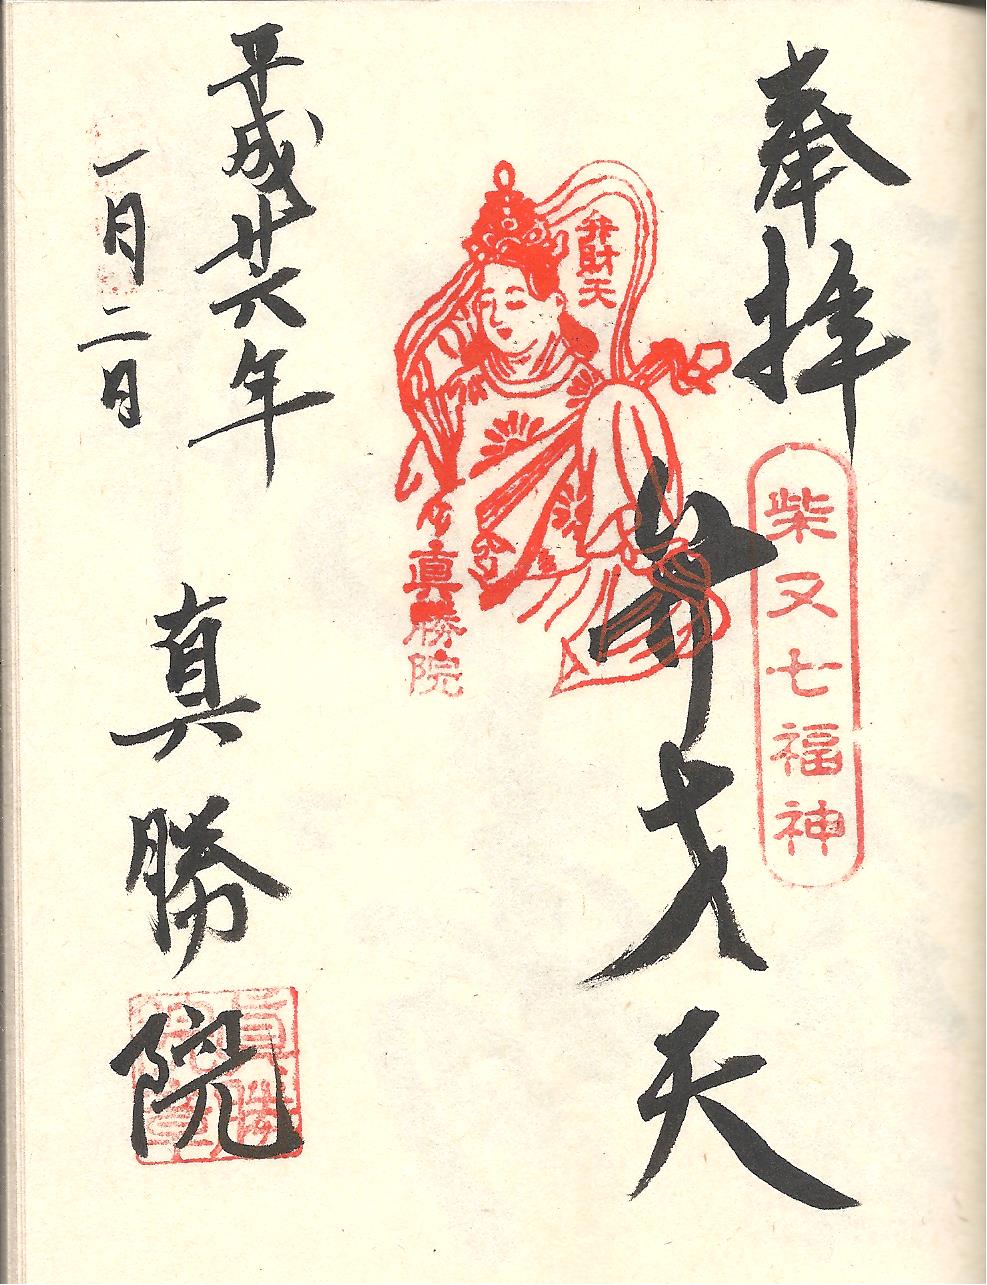 奉拝
柴又七福神
弁才天
弁財天
真勝院
平成廿六年
一月二日
真勝院